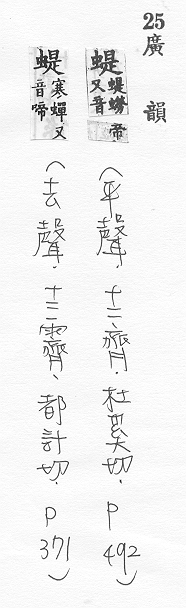 25 廣韻
蝭 蝭蟧又音帝 (平聲．十二齊．杜奚切．P 492)
蝭 寒蟬又音啼 (去聲．十二霽．都計切．P 371)